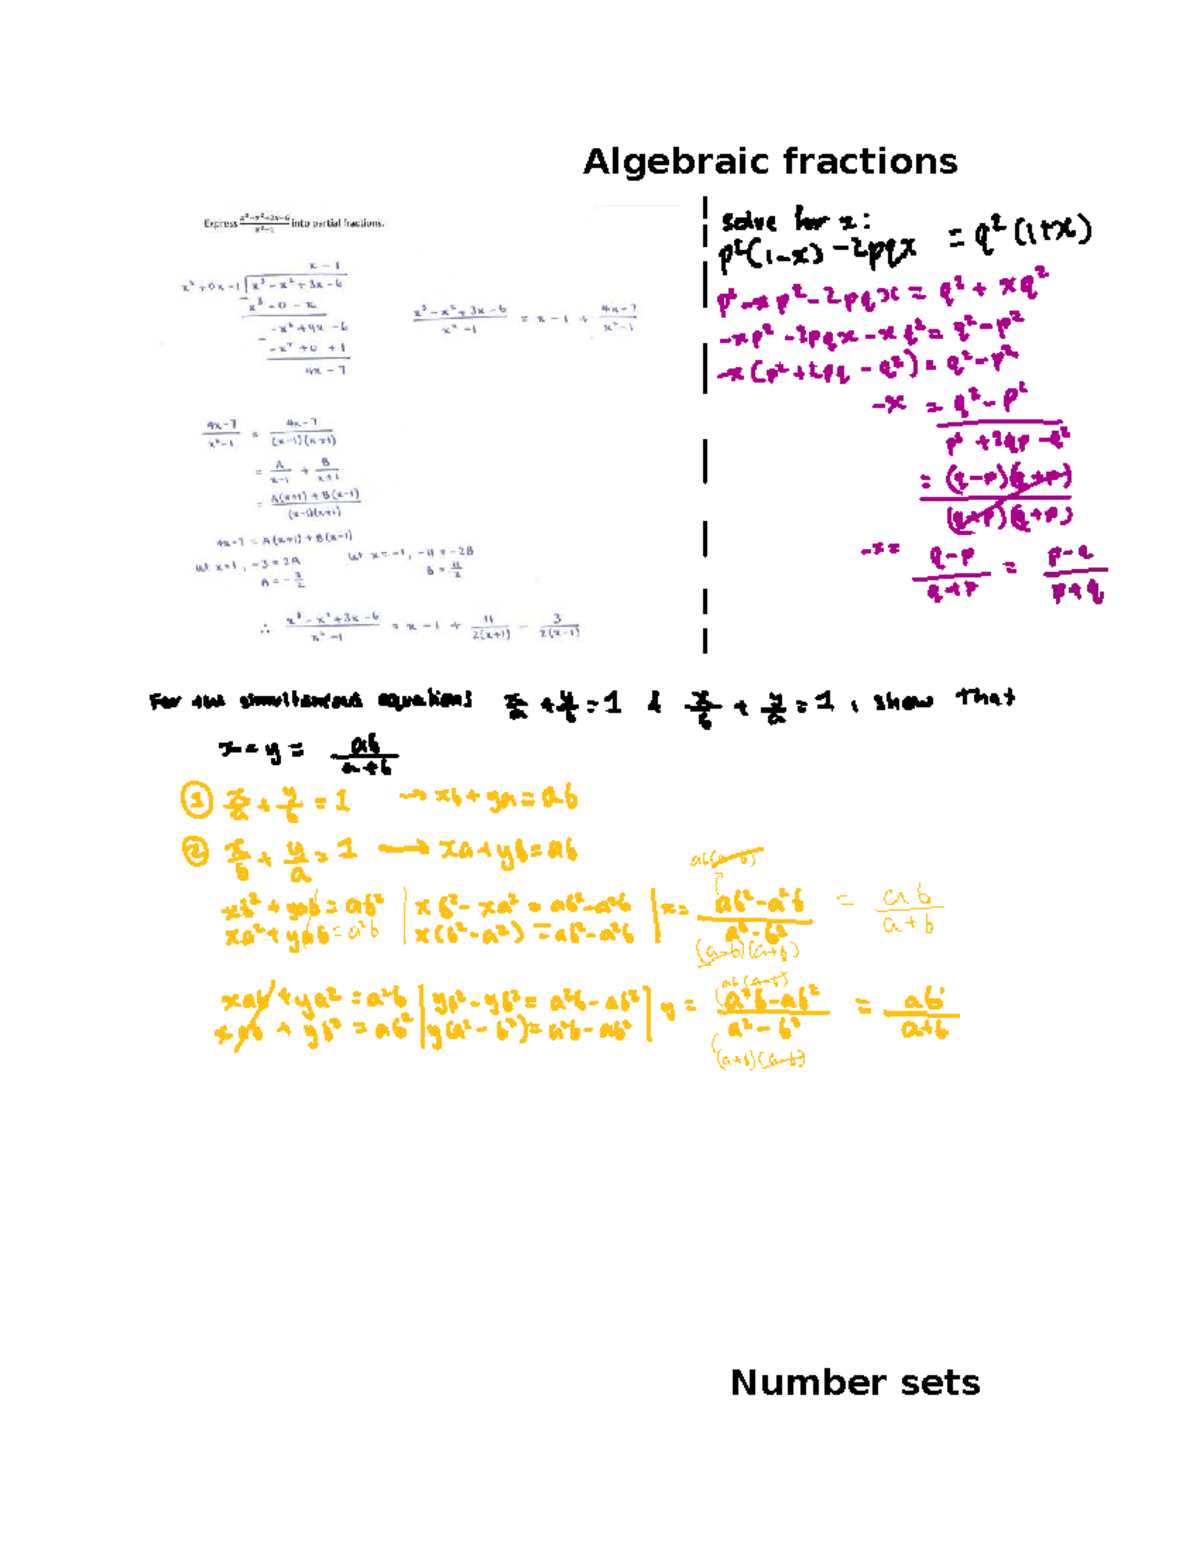 Algebraic fractions
Express (x³-x²+3x-6)/(x²-1) into partial fractions.
x - 1
x² + 0x - 1 | x³ - x² + 3x - 6
x³ - 0 - x
-x² + 4x - 6
- -x² + 0 + 1
4x - 7
(x³ - x² + 3x - 6)/(x² - 1) = x - 1 + (4x - 7)/(x² - 1)
(4x - 7)/(x² - 1) = (4x - 7)/((x-1)(x+1))
= A/(x-1) + B/(x+1)
= (A(x+1) + B(x-1))/((x-1)(x+1))
4x - 7 = A(x+1) + B(x-1)
let x = 1, -3 = 2A
A = -3/2
let x = -1, -11 = -2B
B = 11/2
∴ (x³ - x² + 3x - 6)/(x² - 1) = x - 1 + 11/(2(x+1)) - 3/(2(x-1))
Solve for x:
p²(1-x) - 2pqx = q²(1+x)
p² - xp² - 2pqx = q² + xq²
-xp² - 2pqx - xq² = q² - p²
-x(p² + 2pq - q²) = q² - p²
-x = (q² - p²)/(p² + 2qp - q²)
= ((q-p)(q+p))/((q+p)(q+p))
-x = (q-p)/(q+p) = (p-q)/(p+q)
For the simultaneous equations x/a + y/b = 1 & x/b + y/a = 1, show that
x = y = ab/(a+b)
① x/a + y/b = 1 → xb + ya = ab
② x/b + y/a = 1 → xa + yb = ab
xb² + yab = ab² | xb² - xa² = ab² - a²b | x = (ab² - a²b)/(a² - b²) = ab/(a+b)
xa² + yab = a²b | x(b² - a²) = ab² - a²b |
ab(a-b)
(a-b)(a+b)
xab + ya² = a²b | ya² - yb² = a²b - ab² | y = (a²b - ab²)/(a² - b²) = ab/(a+b)
xab + yb² = ab² | y(a² - b²) = a²b - ab² |
ab(a-b)
(a+b)(a-b)
Number sets